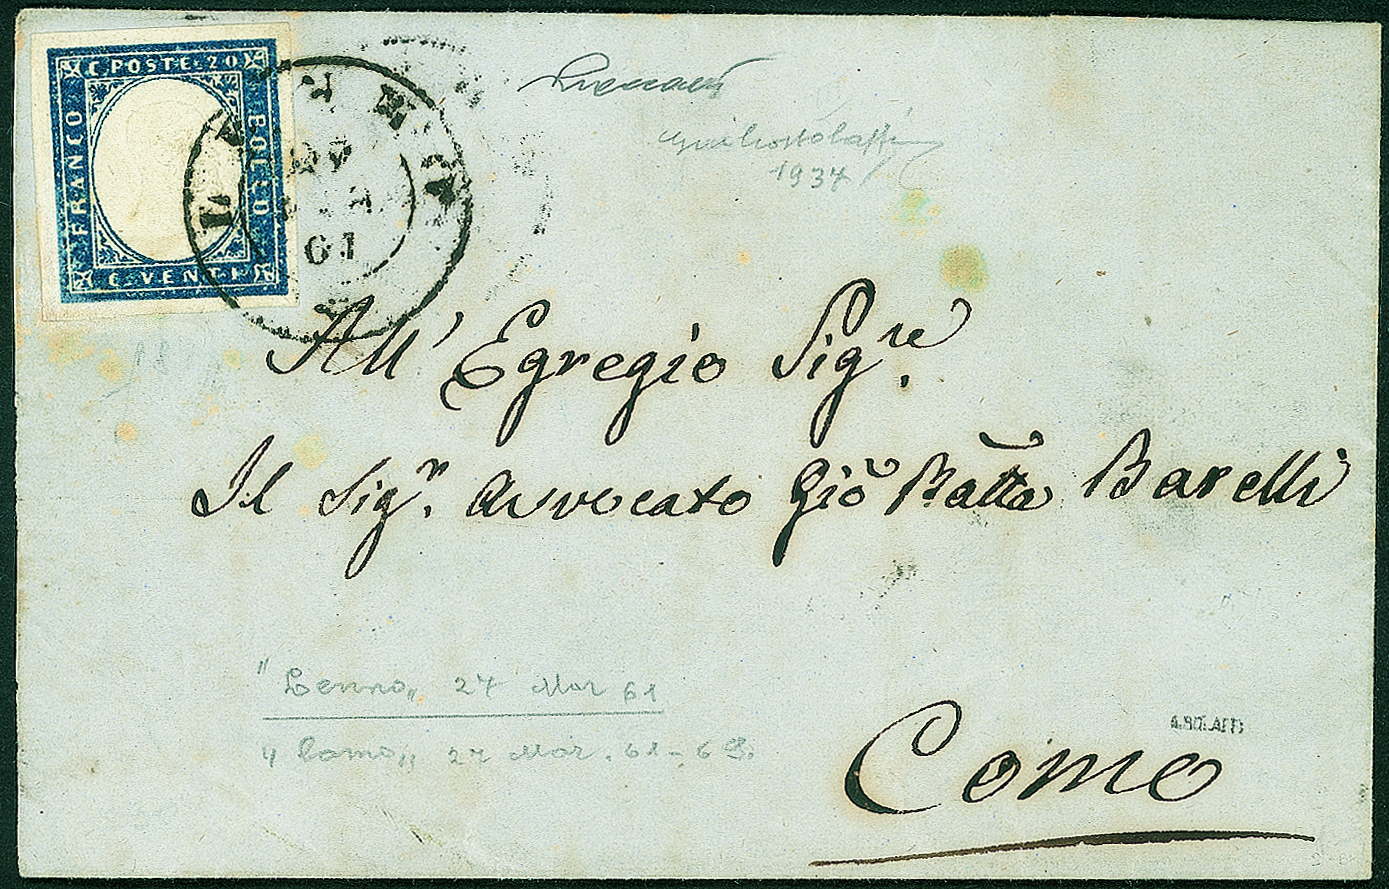 C POSTE 20
FRANCO
BOLLO
C VENTI
LENNO
27
MAR
61
1937
All' Egregio Sig.re
Il Sig.r Avvocato Giō Batta Barelli
"Lenno„ 27 Mar 61
"Como„ 27 Mar. 61 - 6 S.
A. BOLAFFI
Como